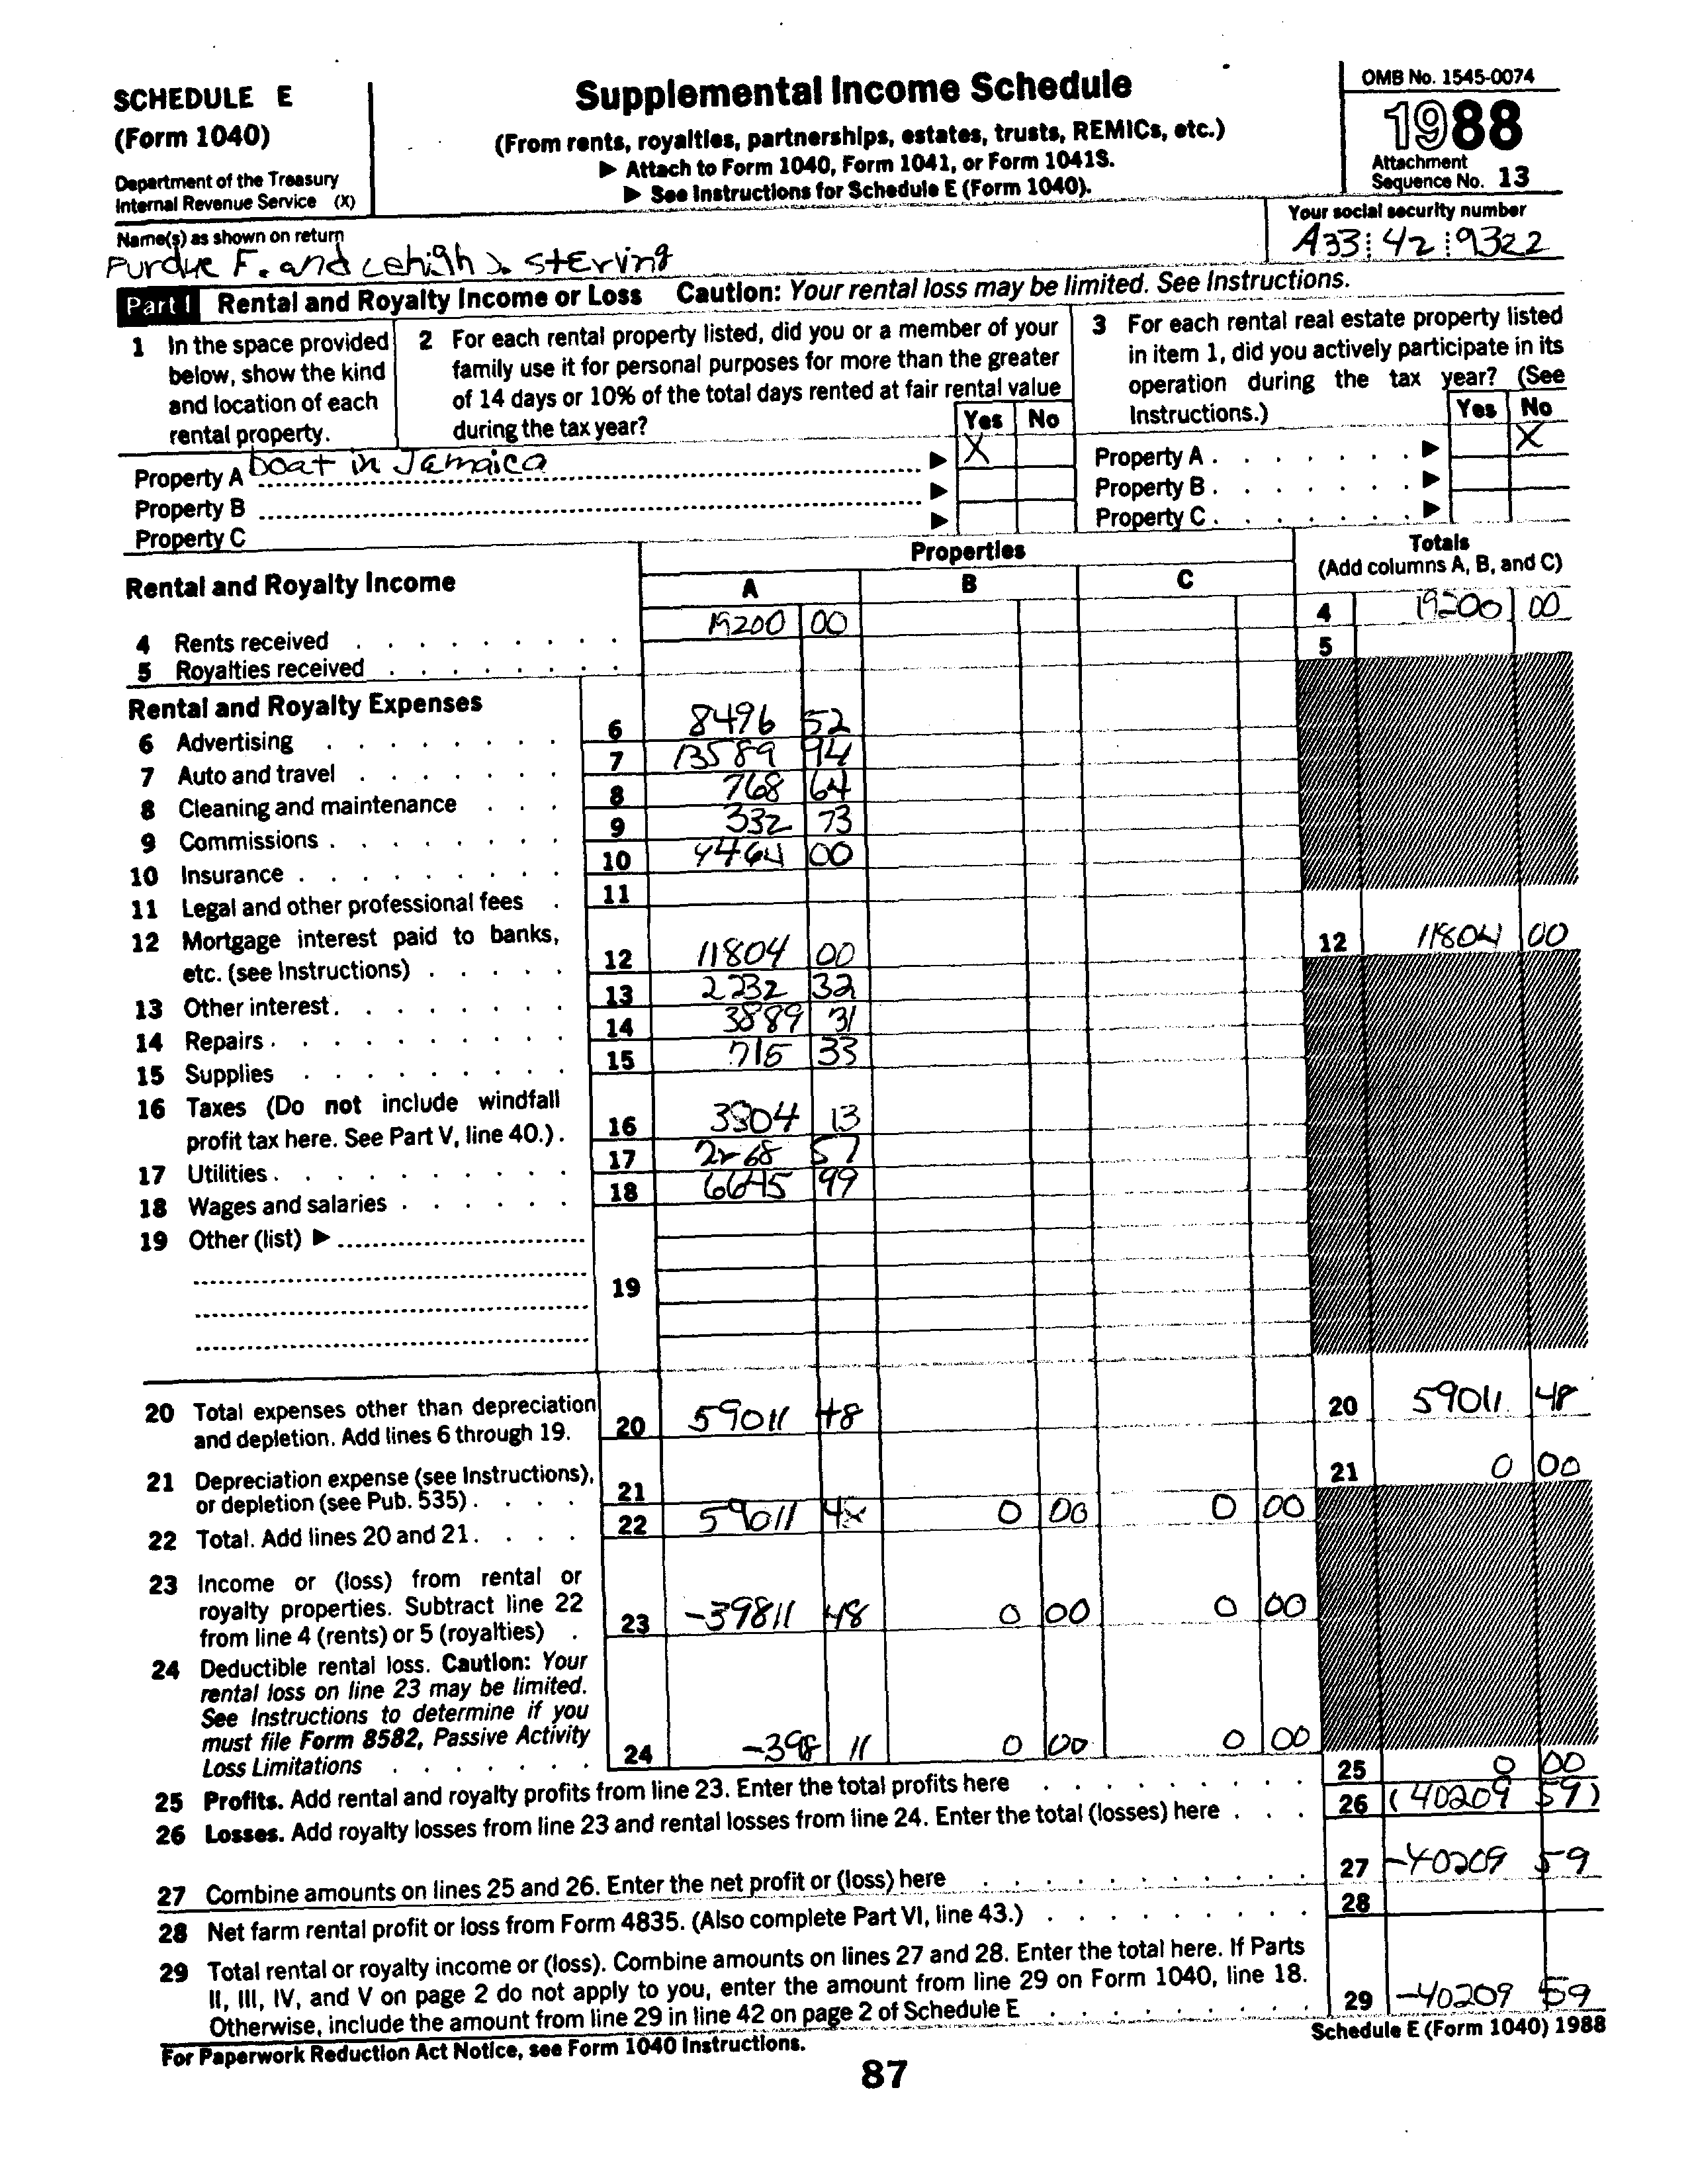 SCHEDULE E
(Form 1040)
Department of the Treasury
Internal Revenue Service (X)
Supplemental Income Schedule
(From rents, royalties, partnerships, estates, trusts, REMICs, etc.)
▶ Attach to Form 1040, Form 1041, or Form 1041S.
▶ See Instructions for Schedule E (Form 1040).
OMB No. 1545-0074
1988
Attachment
Sequence No. 13
Name(s) as shown on return
Purdue F. and Lehigh J. Sterving
Your social security number
A33 42 9322
Part I Rental and Royalty Income or Loss Caution: Your rental loss may be limited. See Instructions.
1 In the space provided
below, show the kind
and location of each
rental property.
2 For each rental property listed, did you or a member of your
family use it for personal purposes for more than the greater
of 14 days or 10% of the total days rented at fair rental value
during the tax year?
Yes No
3 For each rental real estate property listed
in item 1, did you actively participate in its
operation during the tax year? (See
Instructions.)
Yes No
Property A boat in Jamaica ▶ X
Property A ▶ X
Property B ▶
Property B ▶
Property C ▶
Property C ▶
Rental and Royalty Income
Properties
A B C
Totals
(Add columns A, B, and C)
4 Rents received 19200 00 4 19200 00
5 Royalties received 5
Rental and Royalty Expenses
6 Advertising 6 8496 52
7 Auto and travel 7 13589 94
8 Cleaning and maintenance 8 768 64
9 Commissions 9 332 73
10 Insurance 10 4464 00
11 Legal and other professional fees 11
12 Mortgage interest paid to banks,
etc. (see Instructions) 12 11804 00 12 11804 00
13 Other interest 13 2232 32
14 Repairs 14 3889 31
15 Supplies 15 715 33
16 Taxes (Do not include windfall
profit tax here. See Part V, line 40.) 16 3804 13
17 Utilities 17 2268 57
18 Wages and salaries 18 6645 99
19 Other (list) ▶
19
20 Total expenses other than depreciation
and depletion. Add lines 6 through 19. 20 59011 48 20 59011 48
21 Depreciation expense (see Instructions),
or depletion (see Pub. 535) 21 21 0 00
22 Total. Add lines 20 and 21 22 59011 48 0 00 0 00
23 Income or (loss) from rental or
royalty properties. Subtract line 22
from line 4 (rents) or 5 (royalties) 23 -39811 48 0 00 0 00
24 Deductible rental loss. Caution: Your
rental loss on line 23 may be limited.
See Instructions to determine if you
must file Form 8582, Passive Activity
Loss Limitations 24 -398 11 0 00 0 00
25 Profits. Add rental and royalty profits from line 23. Enter the total profits here 25 0 00
26 Losses. Add royalty losses from line 23 and rental losses from line 24. Enter the total (losses) here 26 (40209 59)
27 Combine amounts on lines 25 and 26. Enter the net profit or (loss) here 27 -40209 59
28 Net farm rental profit or loss from Form 4835. (Also complete Part VI, line 43.) 28
29 Total rental or royalty income or (loss). Combine amounts on lines 27 and 28. Enter the total here. If Parts
II, III, IV, and V on page 2 do not apply to you, enter the amount from line 29 on Form 1040, line 18.
Otherwise, include the amount from line 29 in line 42 on page 2 of Schedule E 29 -40209 59
For Paperwork Reduction Act Notice, see Form 1040 Instructions.
Schedule E (Form 1040) 1988
87